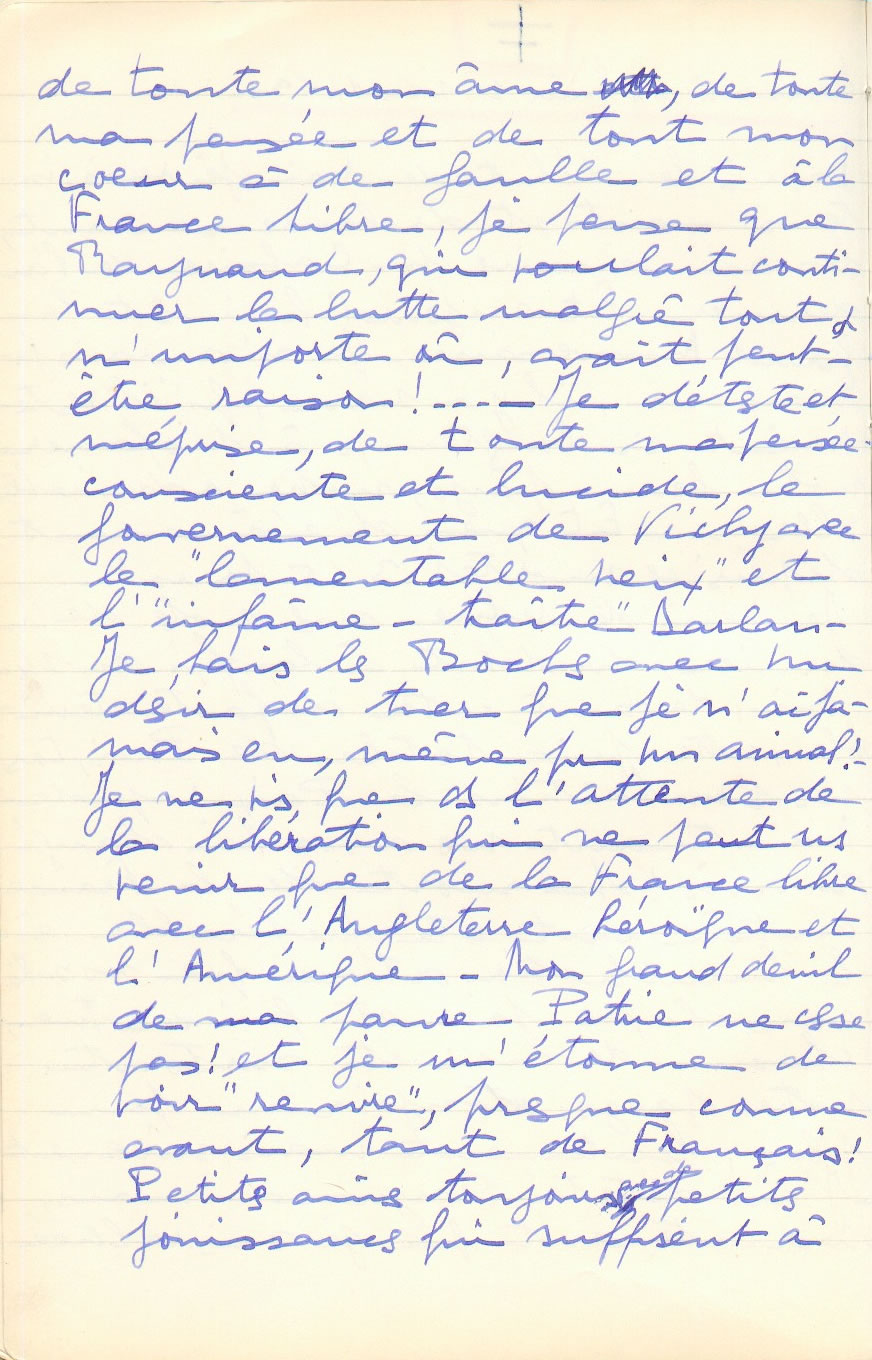 de toute mon âme, de toute
ma pensée et de tout mon
coeur à de Gaulle et à la
France libre, je pense que
Raynaud, qui voulait conti-
nuer la lutte malgré tout &
n'importe où, avait peut-
être raison!---- Je déteste et
méprise, de toute ma pensée
consciente et lucide, le
gouvernement de Vichy avec
le "lamentable vieux" et
l'"infâme - traître" Darlan-
Je hais les Boches avec un
désir de tuer que je n'ai ja-
mais eu, même pr un animal!-
Je ne vis que ds l'attente de
la libération qui ne peut ns
venir que de la France libre
avec l'Angleterre héroïque et
l'Amérique - Mon grand deuil
de ma pauvre Patrie ne cesse
pas! et je m'étonne de
voir "revivre", presque comme
avant, tant de Français!
Petits amis toujours avec de petits
jouissances qui suffisent à